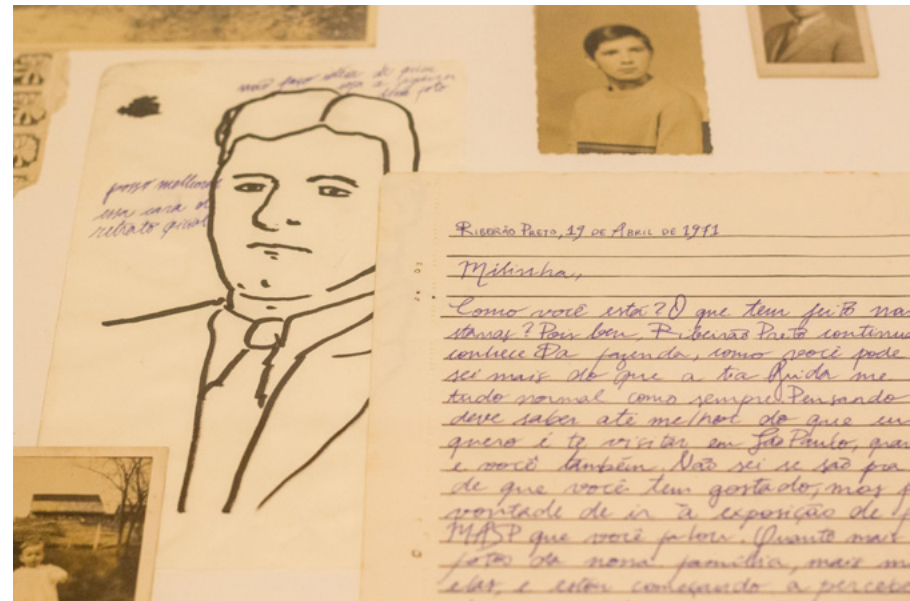 não faço idéia de quem
seja a figura
dessa foto
posso melhorar
essa cara de
retrato
RIBEIRÃO PRETO, 19 DE ABRIL DE 1971
Como você está? O que tem feito nas
? Pois bem, Ribeirão Preto continua
conhece. Da fazenda, como você pode
sei mais do que a tia Guida me
tudo normal como sempre. Pensando
deve saber até melhor do que eu
quero é te visitar em São Paulo,
e você também. Não sei se são pra
de que você tem gostado, mas
vontade de ir à exposição de
MASP que você falou. Quanto mais
fotos da nossa família, mais
elas, e estou começando a